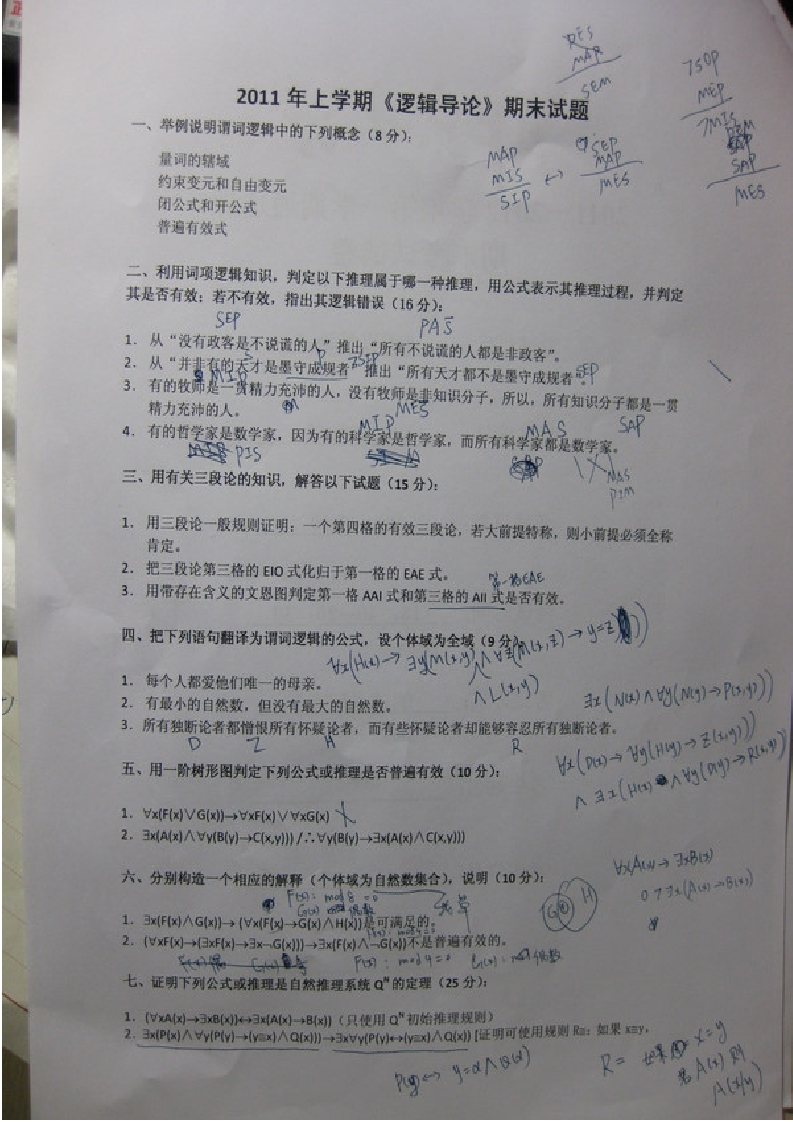 2011 年上学期《逻辑导论》期末试题
一、举例说明谓词逻辑中的下列概念（8 分）：
量词的辖域
约束变元和自由变元
闭公式和开公式
普遍有效式
MAP
MIS
SIP
↔
SEP
MAP
MES
MAP
SEM
MEP
SAP
MES
二、利用词项逻辑知识，判定以下推理属于哪一种推理，用公式表示其推理过程，并判定
其是否有效；若不有效，指出其逻辑错误（16 分）：
SEP
1. 从“没有政客是不说谎的人”推出“所有不说谎的人都是非政客”。
2. 从“并非有的天才是墨守成规者”推出“所有天才都不是墨守成规者”
SEP
3. 有的牧师是一贯精力充沛的人，没有牧师是非知识分子，所以，所有知识分子都是一贯
精力充沛的人。
MIP
MES
MIP
MAS
SAP
4. 有的哲学家是数学家，因为有的科学家是哲学家，而所有科学家都是数学家。
PIS
MAS
PIM
三、用有关三段论的知识，解答以下试题（15 分）：
1. 用三段论一般规则证明：一个第四格的有效三段论，若大前提特称，则小前提必须全称
肯定。
2. 把三段论第三格的 EIO 式化归于第一格的 EAE 式。
第一格EAE
3. 用带存在含义的文恩图判定第一格 AAI 式和第三格的 AII 式是否有效。
四、把下列语句翻译为谓词逻辑的公式，设个体域为全域（9 分）：
∀x(H(x)→∃y(M(x,y)∧∀z(M(x,z)→y=z)
∧L(x,y)
1. 每个人都爱他们唯一的母亲。
2. 有最小的自然数，但没有最大的自然数。
∃x(N(x)∧∀y(N(y)→P(x,y)))
3. 所有独断论者都憎恨所有怀疑论者，而有些怀疑论者却能够容忍所有独断论者。
D Z H R
∀x(D(x)→∀y(H(y)→Z(x,y)))
∧∃x(H(x)∧∀y(D(y)→R(x,y))
五、用一阶树形图判定下列公式或推理是否普遍有效（10 分）：
1. ∀x(F(x)∨G(x))→∀xF(x)∨∀xG(x)
2. ∃x(A(x)∧∀y(B(y)→C(x,y))) /∴∀y(B(y)→∃x(A(x)∧C(x,y)))
∀xA(x)→∃xB(x)
∃x(A(x)→B(x))
六、分别构造一个相应的解释（个体域为自然数集合），说明（10 分）：
1. ∃x(F(x)∧G(x))→(∀x(F(x)→G(x)∧H(x))是可满足的。
2. (∀xF(x)→(∃xF(x)→∃x¬G(x)))→∃x(F(x)∧¬G(x))不是普遍有效的。
七、证明下列公式或推理是自然推理系统 Qᴺ 的定理（25 分）：
1. (∀xA(x)→∃xB(x))↔∃x(A(x)→B(x))（只使用 Qᴺ 初始推理规则）
2. ∃x(P(x)∧∀y(P(y)→(y≡x)∧Q(x)))→∃x∀y(P(y)↔(y≡x)∧Q(x)) [证明可使用规则 R≡：如果 x≡y，